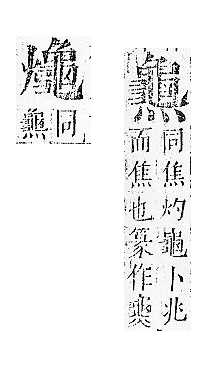 同焦灼龜卜兆
而焦也篆作
同